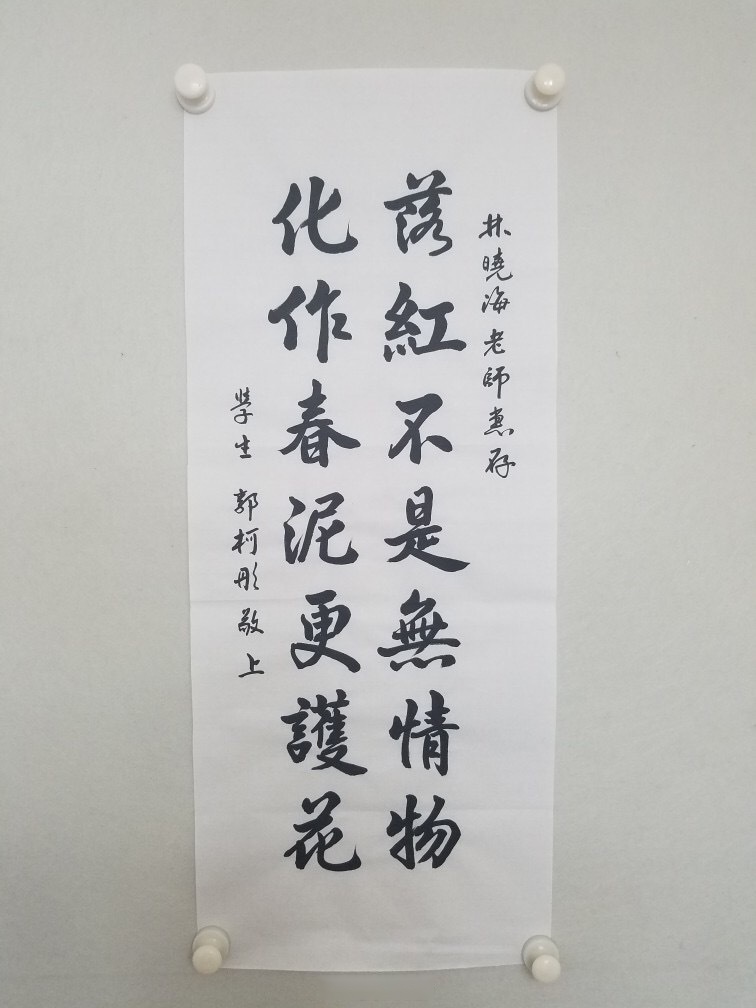 林曉海老師惠存
落紅不是無情物
化作春泥更護花
學生 郭柯彤敬上